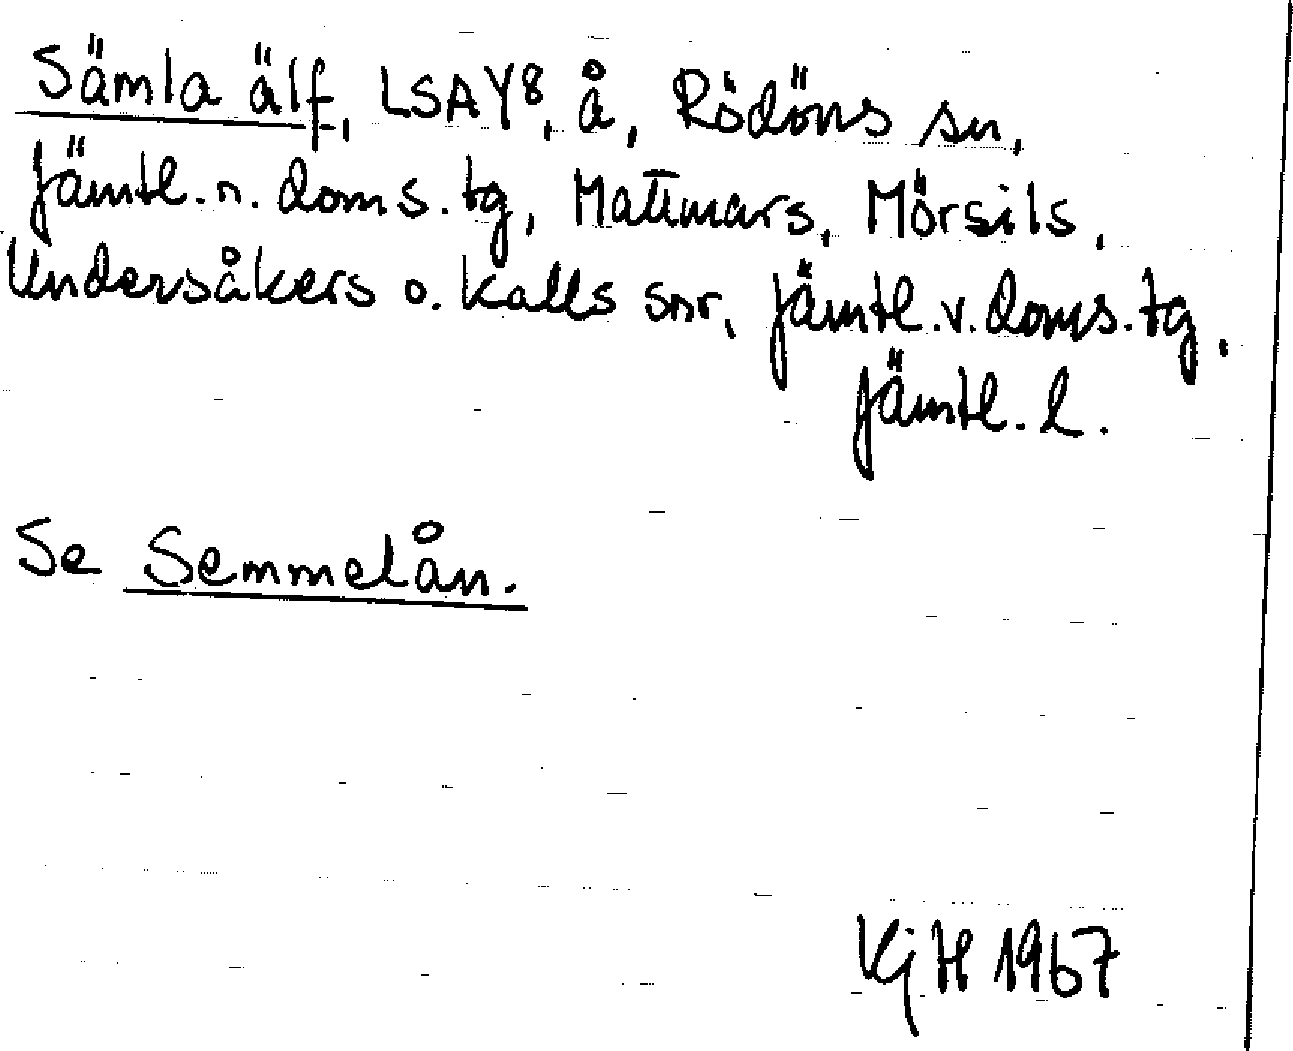 Sämla älf, LSA Y8, å, Rödöns sn,
Jämtl. n. doms. tg, Mattmars, Mörsils,
Undersåkers o. Kalls snr, Jämtl. v. doms. tg,
Jämtl. l.
Se Semmelån.
KjH 1967